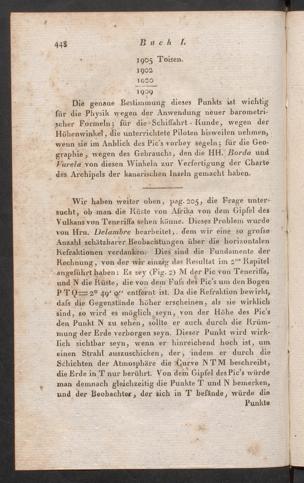 448 Buch I.
1905 Toisen.
1902
1920
1909
Die genaue Bestimmung dieses Punkts ist wichtig
für die Physik wegen der Anwendung neuer barometri-
scher Formeln; für die Schiffahrt-Kunde, wegen der
Höhenwinkel, die unterrichtete Piloten bisweilen nehmen,
wenn sie im Anblick des Pic's vorbey segeln; für die Geo-
graphie, wegen des Gebrauchs, den die HH. Borda und
Varela von diesen Winkeln zur Verfertigung der Charte
des Archipels der kanarischen Inseln gemacht haben.
Wir haben weiter oben, pag. 205, die Frage unter-
sucht, ob man die Küste von Afrika von dem Gipfel des
Vulkans von Teneriffa sehen könne. Dieses Problem wurde
von Hrn. Delambre bearbeitet, dem wir eine so große
Anzahl schätzbarer Beobachtungen über die horizontalen
Refraktionen verdanken. Dies sind die Fundamente der
Rechnung, von der wir einzig das Resultat im 2ten Kapitel
angeführt haben: Es sey (Fig. 2) M der Pic von Teneriffa,
und N die Küste, die von dem Fuß des Pic's um den Bogen
PTQ=2° 49′ 0″ entfernt ist. Da die Refraktion bewirkt,
daß die Gegenstände höher erscheinen, als sie wirklich
sind, so wird es möglich seyn, von der Höhe des Pic's
den Punkt N zu sehen, sollte er auch durch die Krüm-
mung der Erde verborgen seyn. Dieser Punkt wird wirk-
lich sichtbar seyn, wenn er hinreichend hoch ist, um
einen Strahl auszuschicken, der, indem er durch die
Schichten der Atmosphäre die Curve NTM beschreibt,
die Erde in T nur berührt. Von dem Gipfel des Pic's würde
man demnach gleichzeitig die Punkte T und N bemerken,
und der Beobachter, der sich in T befände, würde die
Punkte